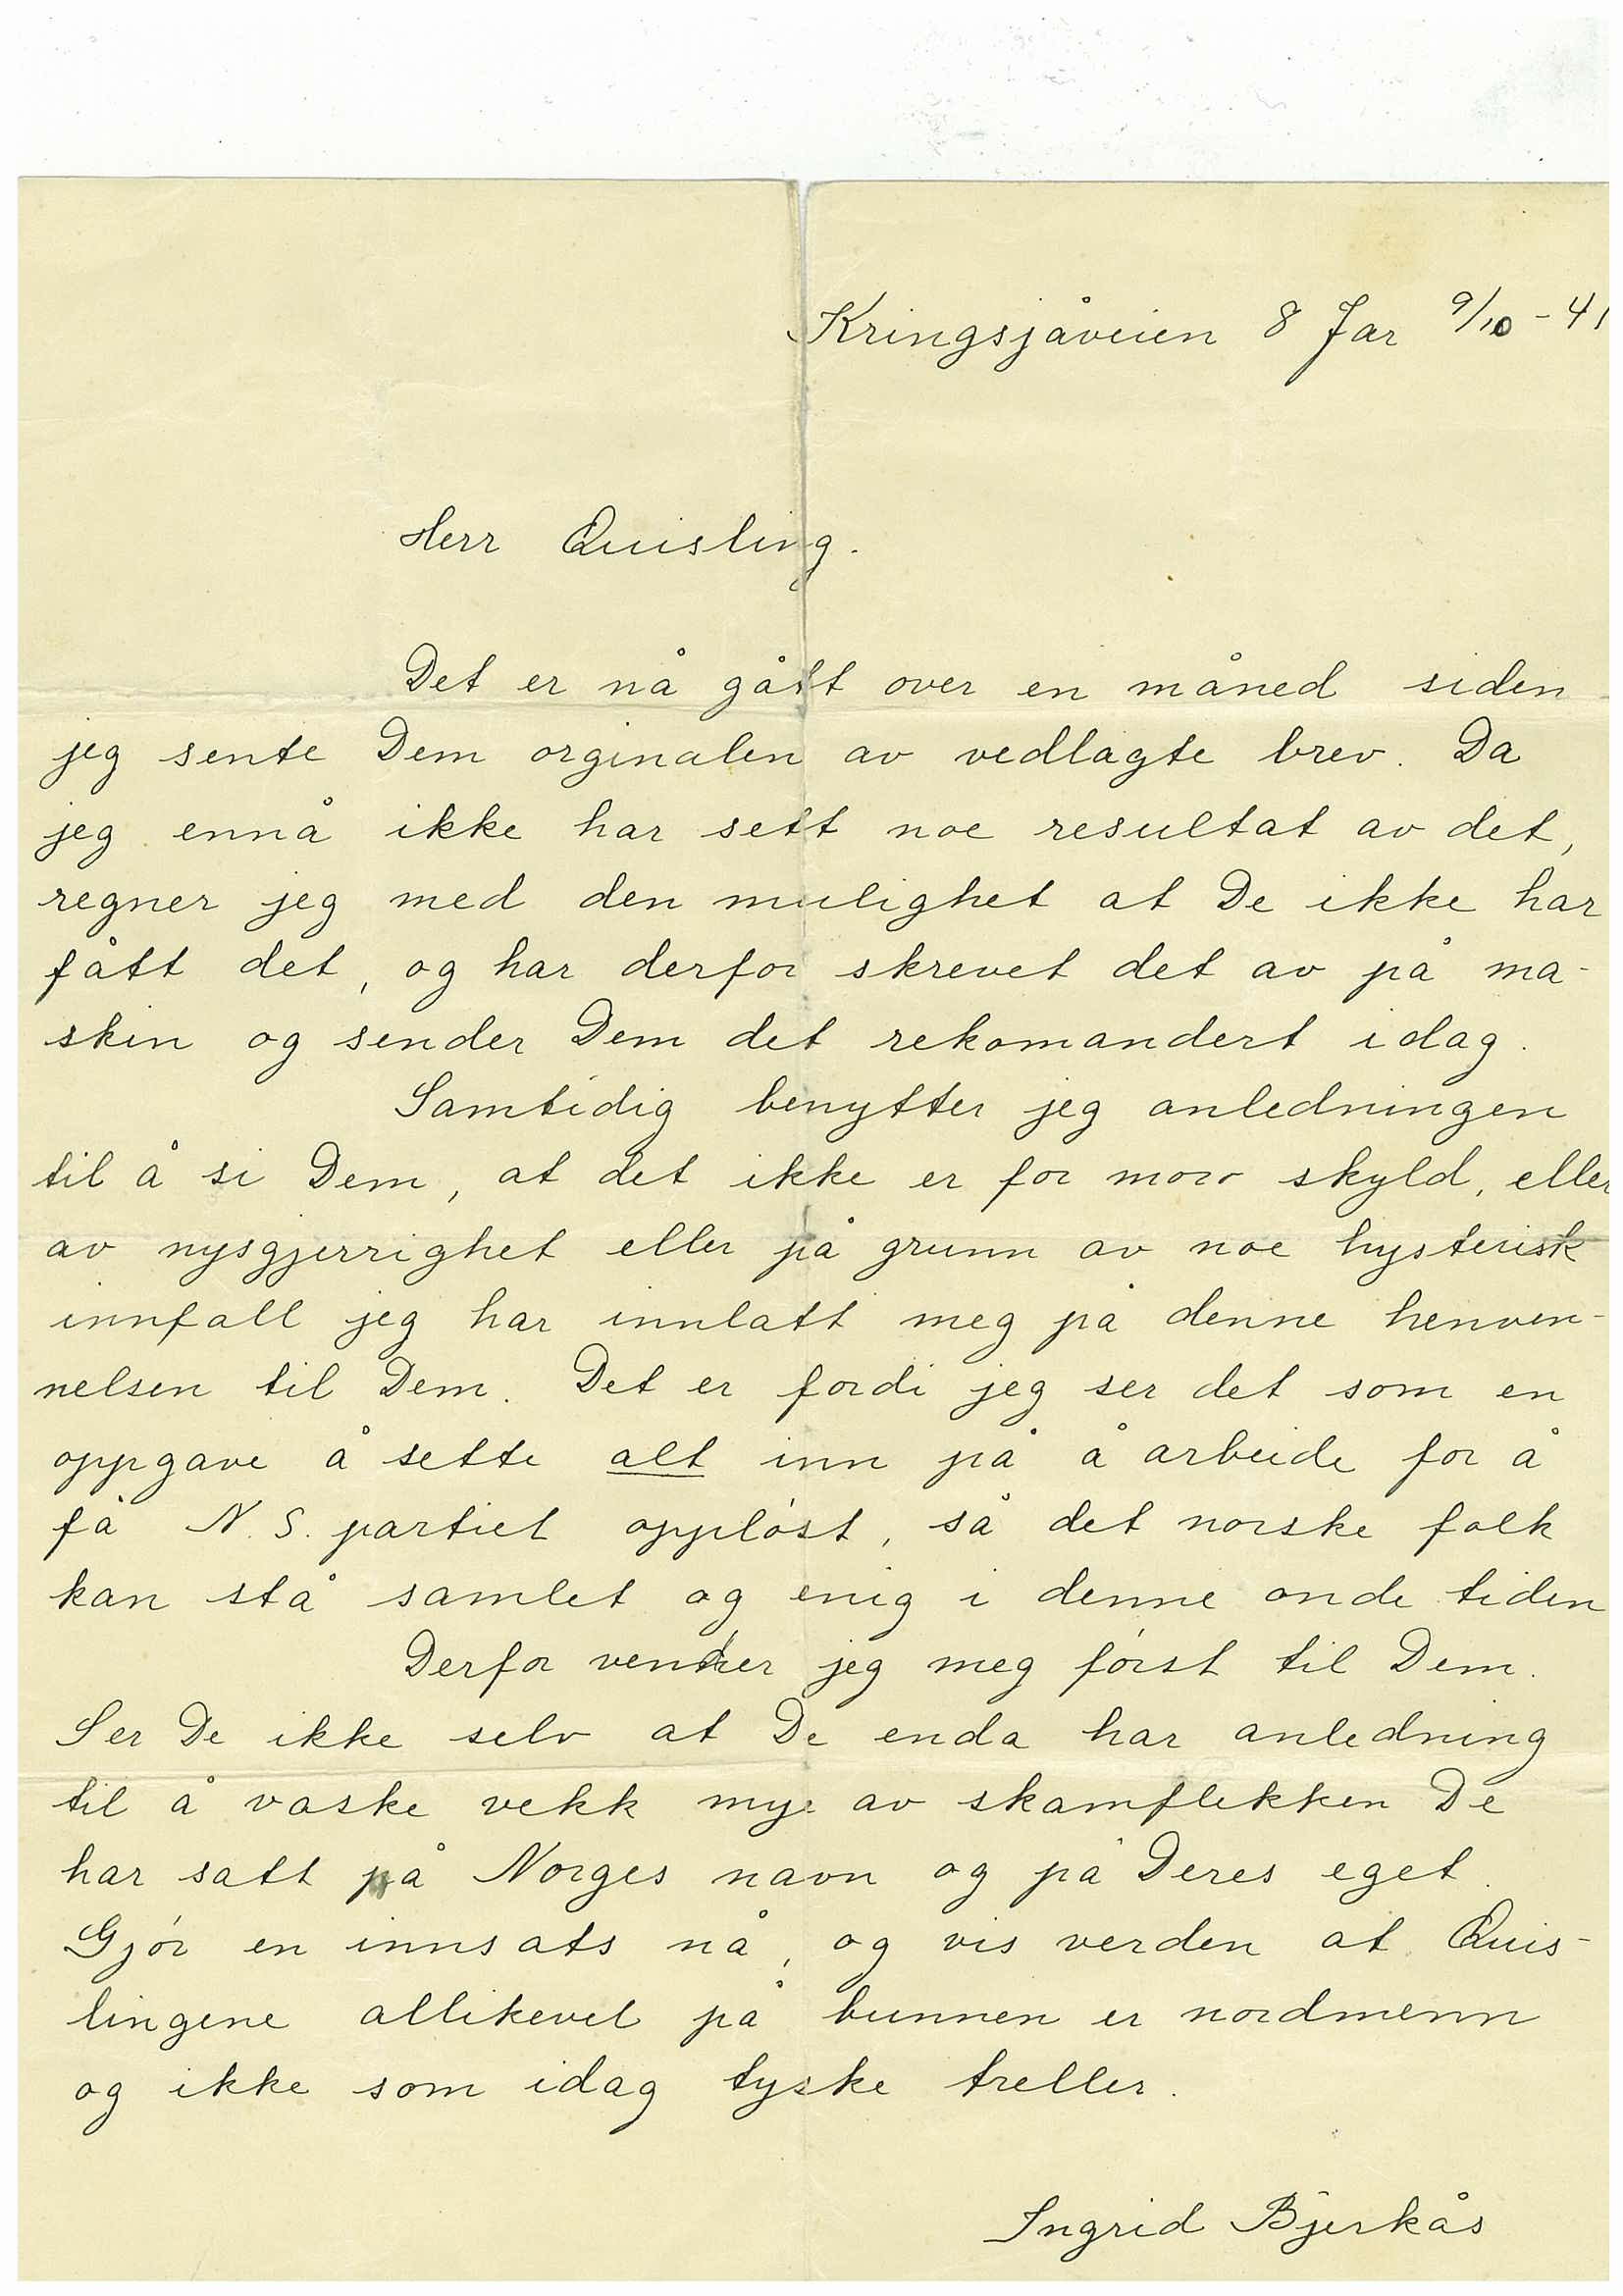 Kringsjåveien 8 Jar 9/10-41
Herr Quisling.
Det er nå gått over en måned siden
jeg sente Dem orginalen av vedlagte brev. Da
jeg ennå ikke har sett noe resultat av det,
regner jeg med den mulighet at De ikke har
fått det, og har derfor skrevet det av på ma-
skin og sender Dem det rekomandert idag.
Samtidig benytter jeg anledningen
til å si Dem, at det ikke er for moro skyld, eller
av nysgjerrighet eller på grunn av noe hysterisk
innfall jeg har innlatt meg på denne henven-
nelsen til Dem. Det er fordi jeg ser det som en
oppgave å sette alt inn på å arbeide for å
få N.S. partiet oppløst, så det norske folk
kan stå samlet og enig i denne onde tiden
Derfor vender jeg meg først til Dem.
Ser De ikke selv at De enda har anledning
til å vaske vekk mye av skamflekken De
har satt på Norges navn og på Deres eget.
Gjør en innsats nå, og vis verden at Quis-
lingene allikevel på bunnen er nordmenn
og ikke som idag tyske treller.
Ingrid Bjerkås